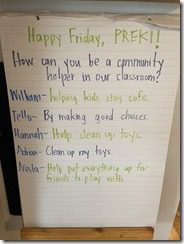 Happy Friday, PREK!!
How can you be a community
helper in our classroom?
William- helping kids stay safe.
Tello- By making good choices.
Hannah- Help clean up toys.
Adrian- Clean up my toys.
Nasta- Help put everything up for
friends to play with.